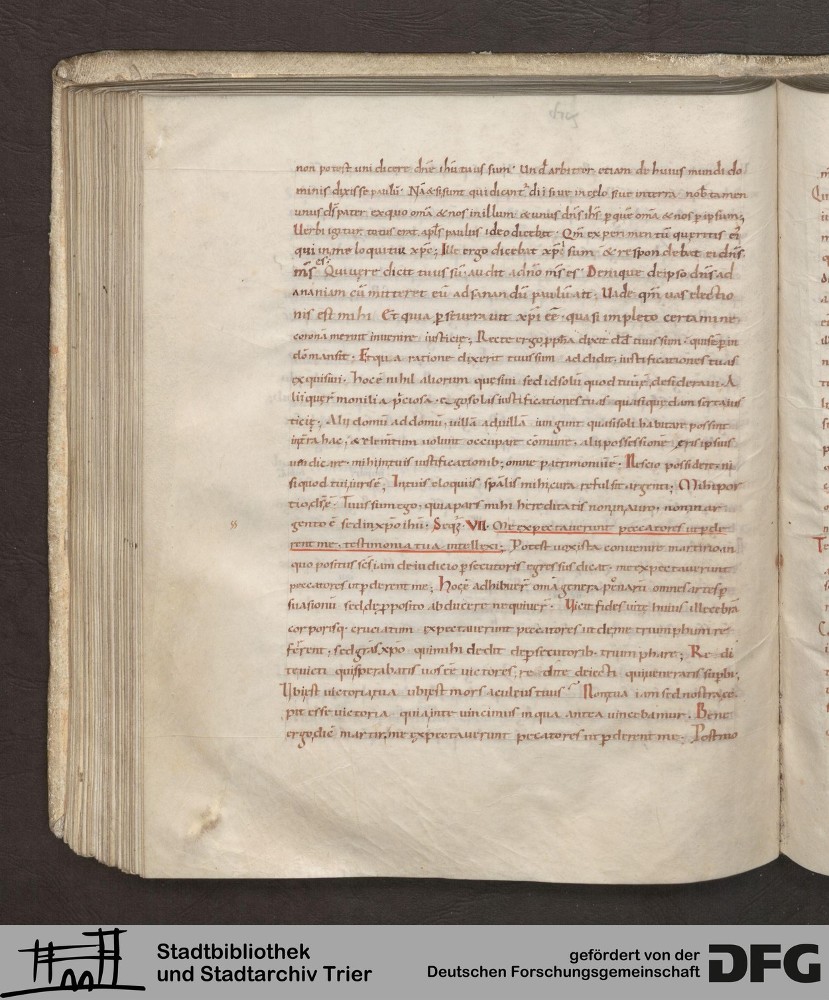 non potest uni dicere dn̄e ihū tuus sum. Und̄ arbitror etiam de huius mundi do
minis dixisse paulū. Nā & si sunt qui dicant dii siue in celo siue in terra nob̄ tamen
unus d̄s pater ex quo om̄a & nos in illum & unus dn̄s ih̄s p quē om̄a & nos p ipsum;
Uerbi igitur totus erat apl̄s paulus ideo dicebat. Qm̄ experimentū queritis ei
qui in me loquitur xp̄c; Ille ergo dicebat xp̄i sum & respondebat ei dn̄s
m̄s es. Qui uere dicit tuus sū audit a dn̄o m̄s es. Denique de ipso dn̄s ad
ananiam cū mitteret eū ad sanandū paulum ait; Uade qm̄ uas electio
nis est mihi Et quia pseuerauit xp̄i eē. quasi impleto certamine
coronā meruit inuenire iusticię; Recte ergo ppha dixit d̄d tuus sum. quise p in
dōmansit. Et qua ratione dixerit tuus sum addidit. iustificationes tuas
exquisiui. Hoc ē nihil aliorum quesiui sed id solū quod tuū ē desideraui. A
lii querunt monilia p̄ciosa. ego solas iustificationes tuas quasi quedam serta ius
ticię; Alii domū ad domū, uillā ad uillā iungunt quasi soli habitare possint
in terra hac, & elem̄tum uolunt occupare cōmune. alii possessionē eris ipsius
uindicare. mihi in tuis iustificationib; omne patrimoniū ē. Nescio possidere ni
si quod tui iuris ē, In tuis eloquiis sp̄alis mihi cura refulsit argenti; Mihi por
tio d̄s ē. Tuus sum ego, quia pars mihi hereditatis non in auro, non in ar
gento ē sed in xp̄o ihū. Seqr̄. VII. Me expectauerunt peccatores ut pde
rent me. testimonia tua intellexi; Potest uox ista conuenire martirio an
quo positus sc̄s iam de iudicio psecutoris egressus dicat. me expectauerunt
peccatores ut pderent me; Hoc ē adhibuer̄ om̄a genera penarū omnes artes p
suasionū sed de pposito abducere nequiuer̄. Uicit fides uitę huius illecebrā
corporisq; cruciatum expectauerunt peccatores ut de me triumphum re
ferrent; sed grās xp̄o qui mihi dedit de psecutorib; triumphare; Re di
te uicti qui sperabatis uos eē uictores; re dite deiecti qui ueneratis supbi;
Ubi est uictoria tua ubi est mors aculeus tuus? Non tua iam sed nostra ce
pit esse uictoria quia in te uincimus in qua antea uincebamur. Bene
ergo dic̄ martir; me expectauerunt peccatores ut pderent me. Postrmo
Stadtbibliothek
und Stadtarchiv Trier
gefördert von der
Deutschen Forschungsgemeinschaft
DFG